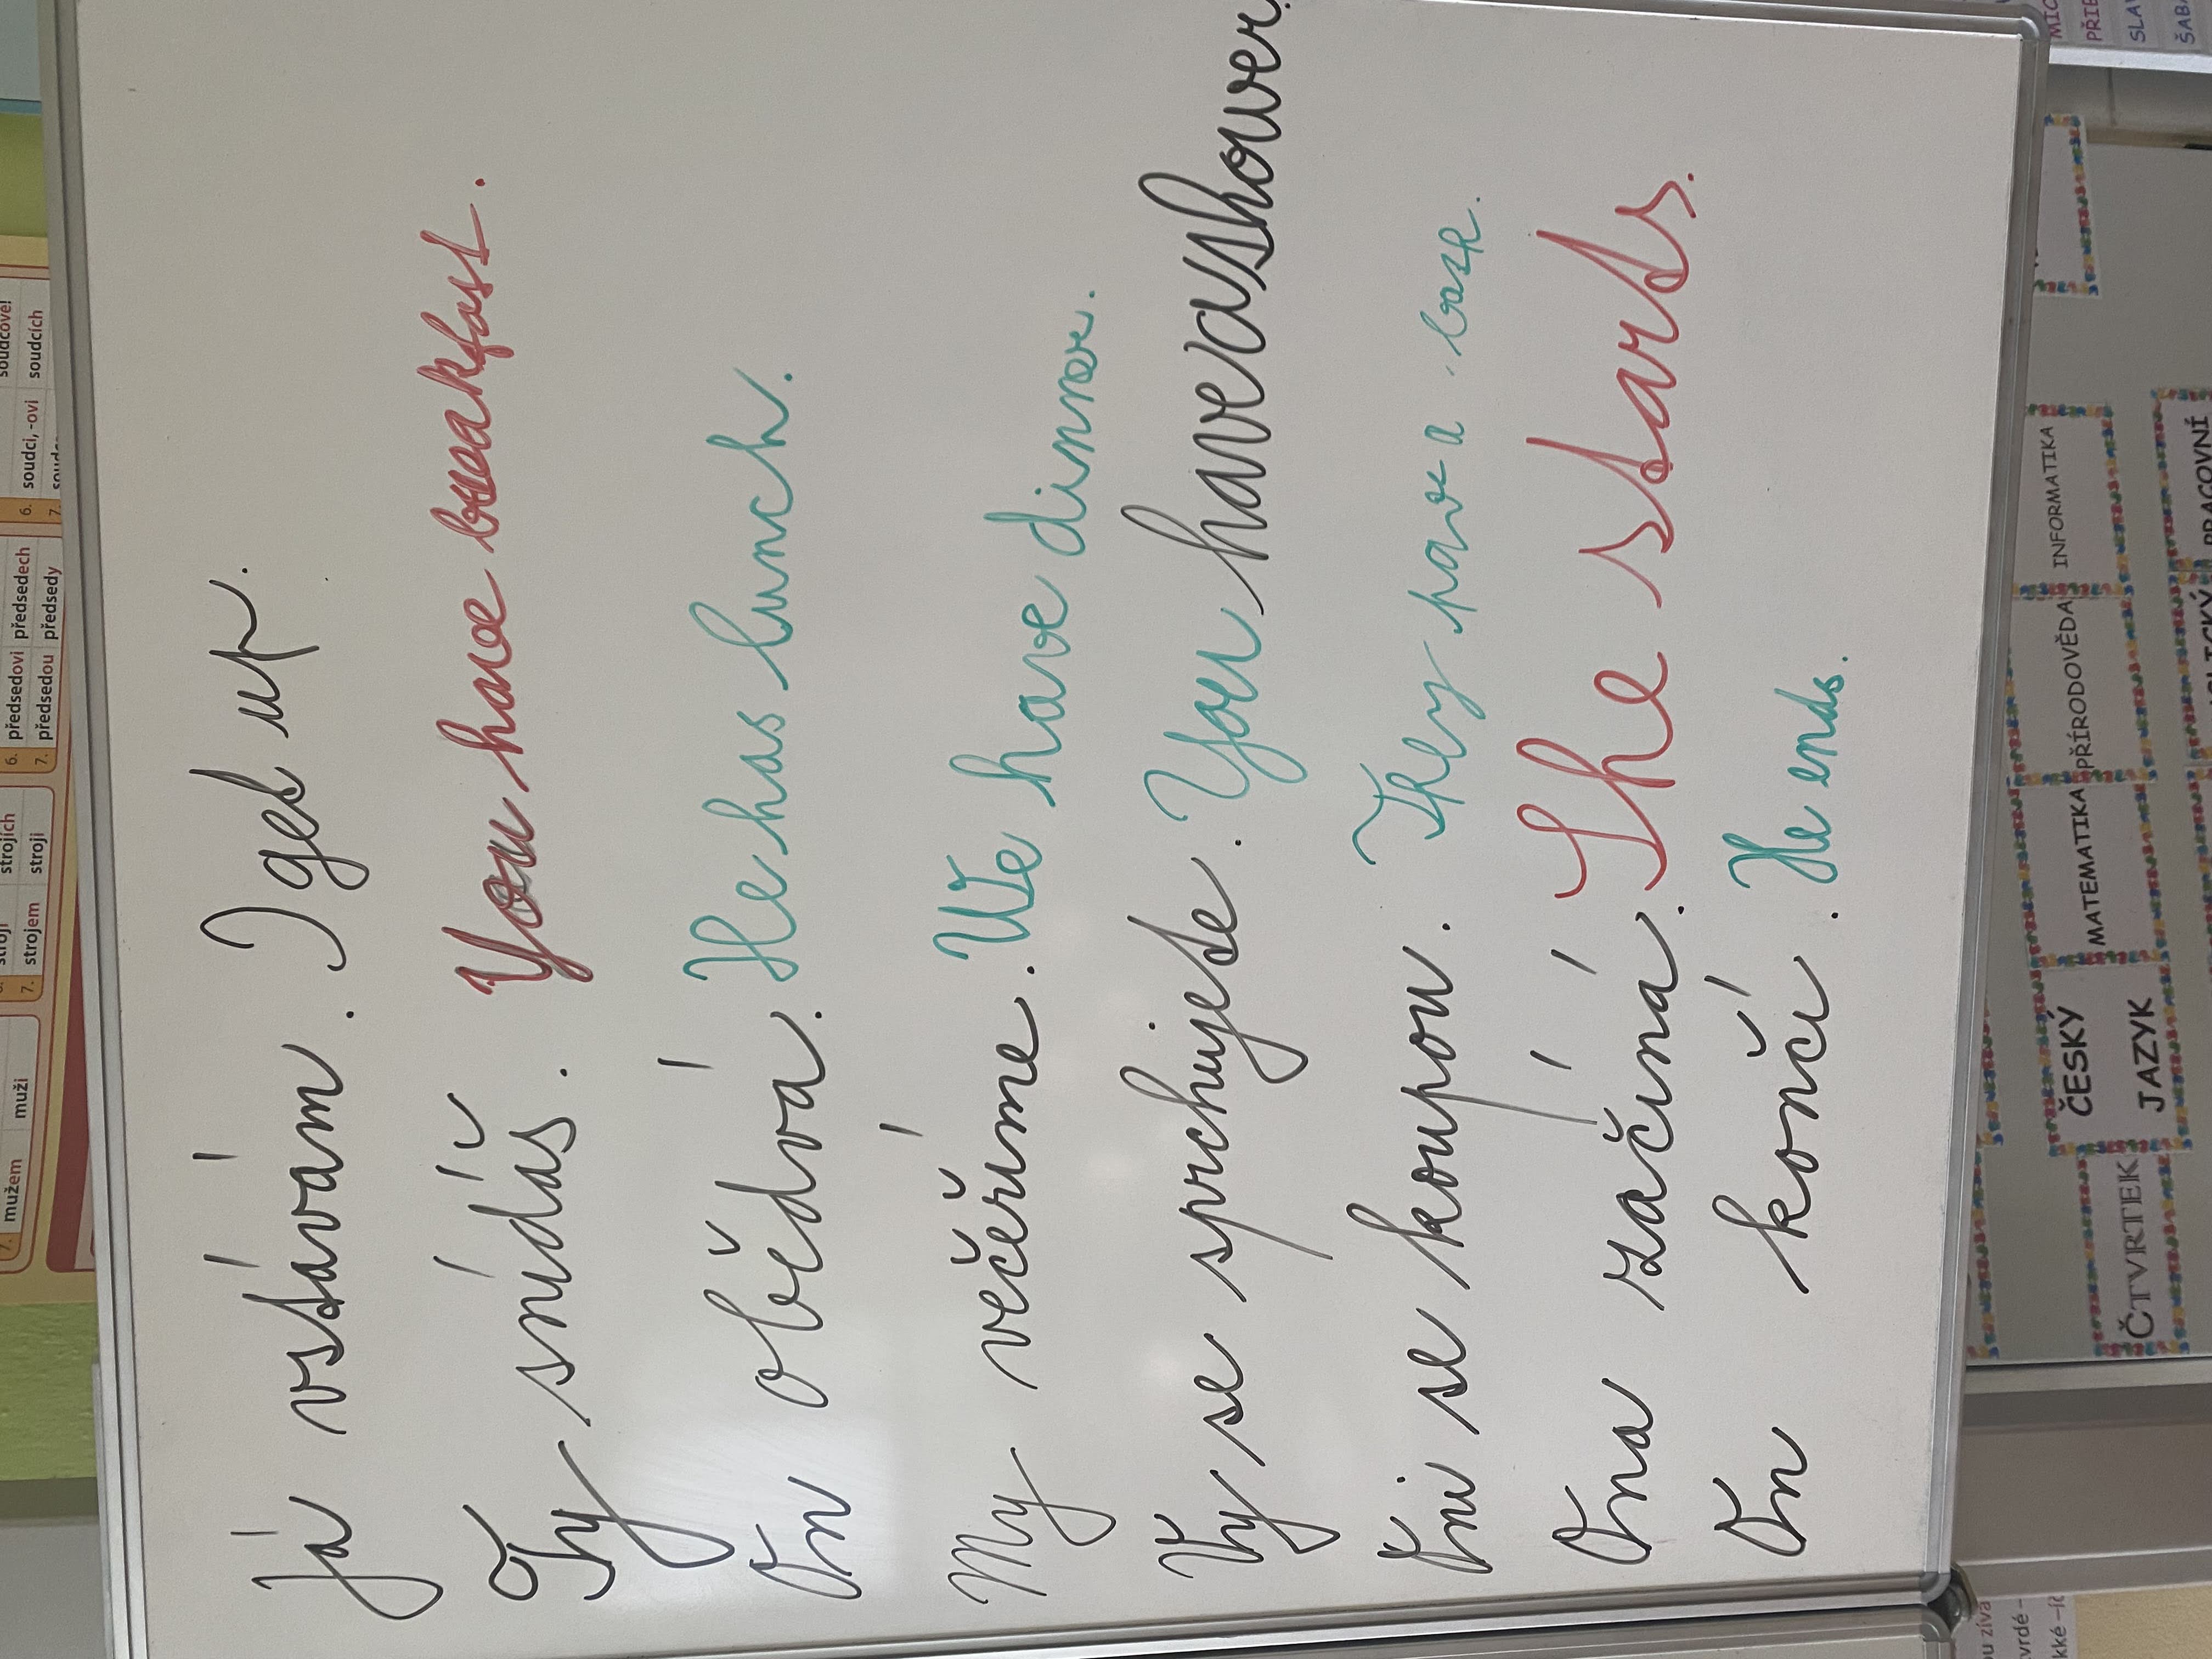 Já vstávám. I get up.
Ty snídáš. You have breakfast.
On obědvá. He has lunch.
My večeříme. We have dinner.
Vy se sprchujete. You have a shower.
Oni se koupou. They have a
Ona začíná. She starts.
On končí. He ends.
6. předsedovi předsedech
7. předsedou předsedy
6. soudci, -ovi soudcích
7.
strojích
7. strojem stroji
7. mužem muži
ČTVRTEK
ČESKÝ JAZYK
MATEMATIKA
PŘÍRODOVĚDA
INFORMATIKA
PRACOVNÍ